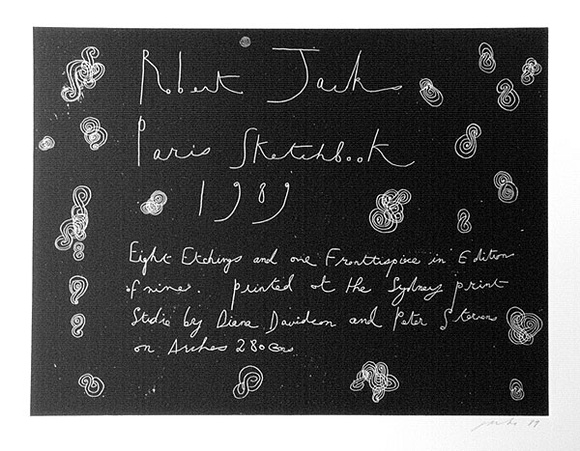 Robert Jacks
Paris Sketchbook
1989
Eight Etchings and one Fronttispiece in Edition
of nine. printed at the Sydney print
Studio by Diana Davidson and Peter Stevens
on Arches 280 Gms.
Jacks 89